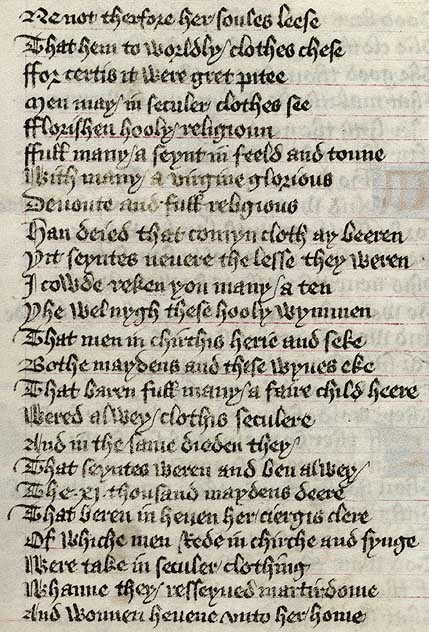 Ne not therfore her soules leese
That hem to worldly / clothes chese
ffor certis it were gret pitee
Men may / in seculer clothes see
fflorishen hooly / religioun
ffull many / a seynt in feeld and toune
With many / a virgine glorious
Devoute and full religious
Han deied that comyn cloth ay beeren
Yit seyntes nevere the lesse they weren
I cowde reken you many / a ten
Yhe wel nygh these hooly wymmen
That men in chirchis herie and seke
Bothe maydens and these wyves eke
That baren full many / a faire child heere
Wered alwey / clothis seculere
And in the same dieden they /
That seyntes weren and ben alwey /
The .xi. thousand maydens deere
That beren in heven her ciergis clere
Of whiche men rede in chirche and synge
Were take in seculer clothing
Whanne they / resseyved martirdome
And wonnen hevene unto her home